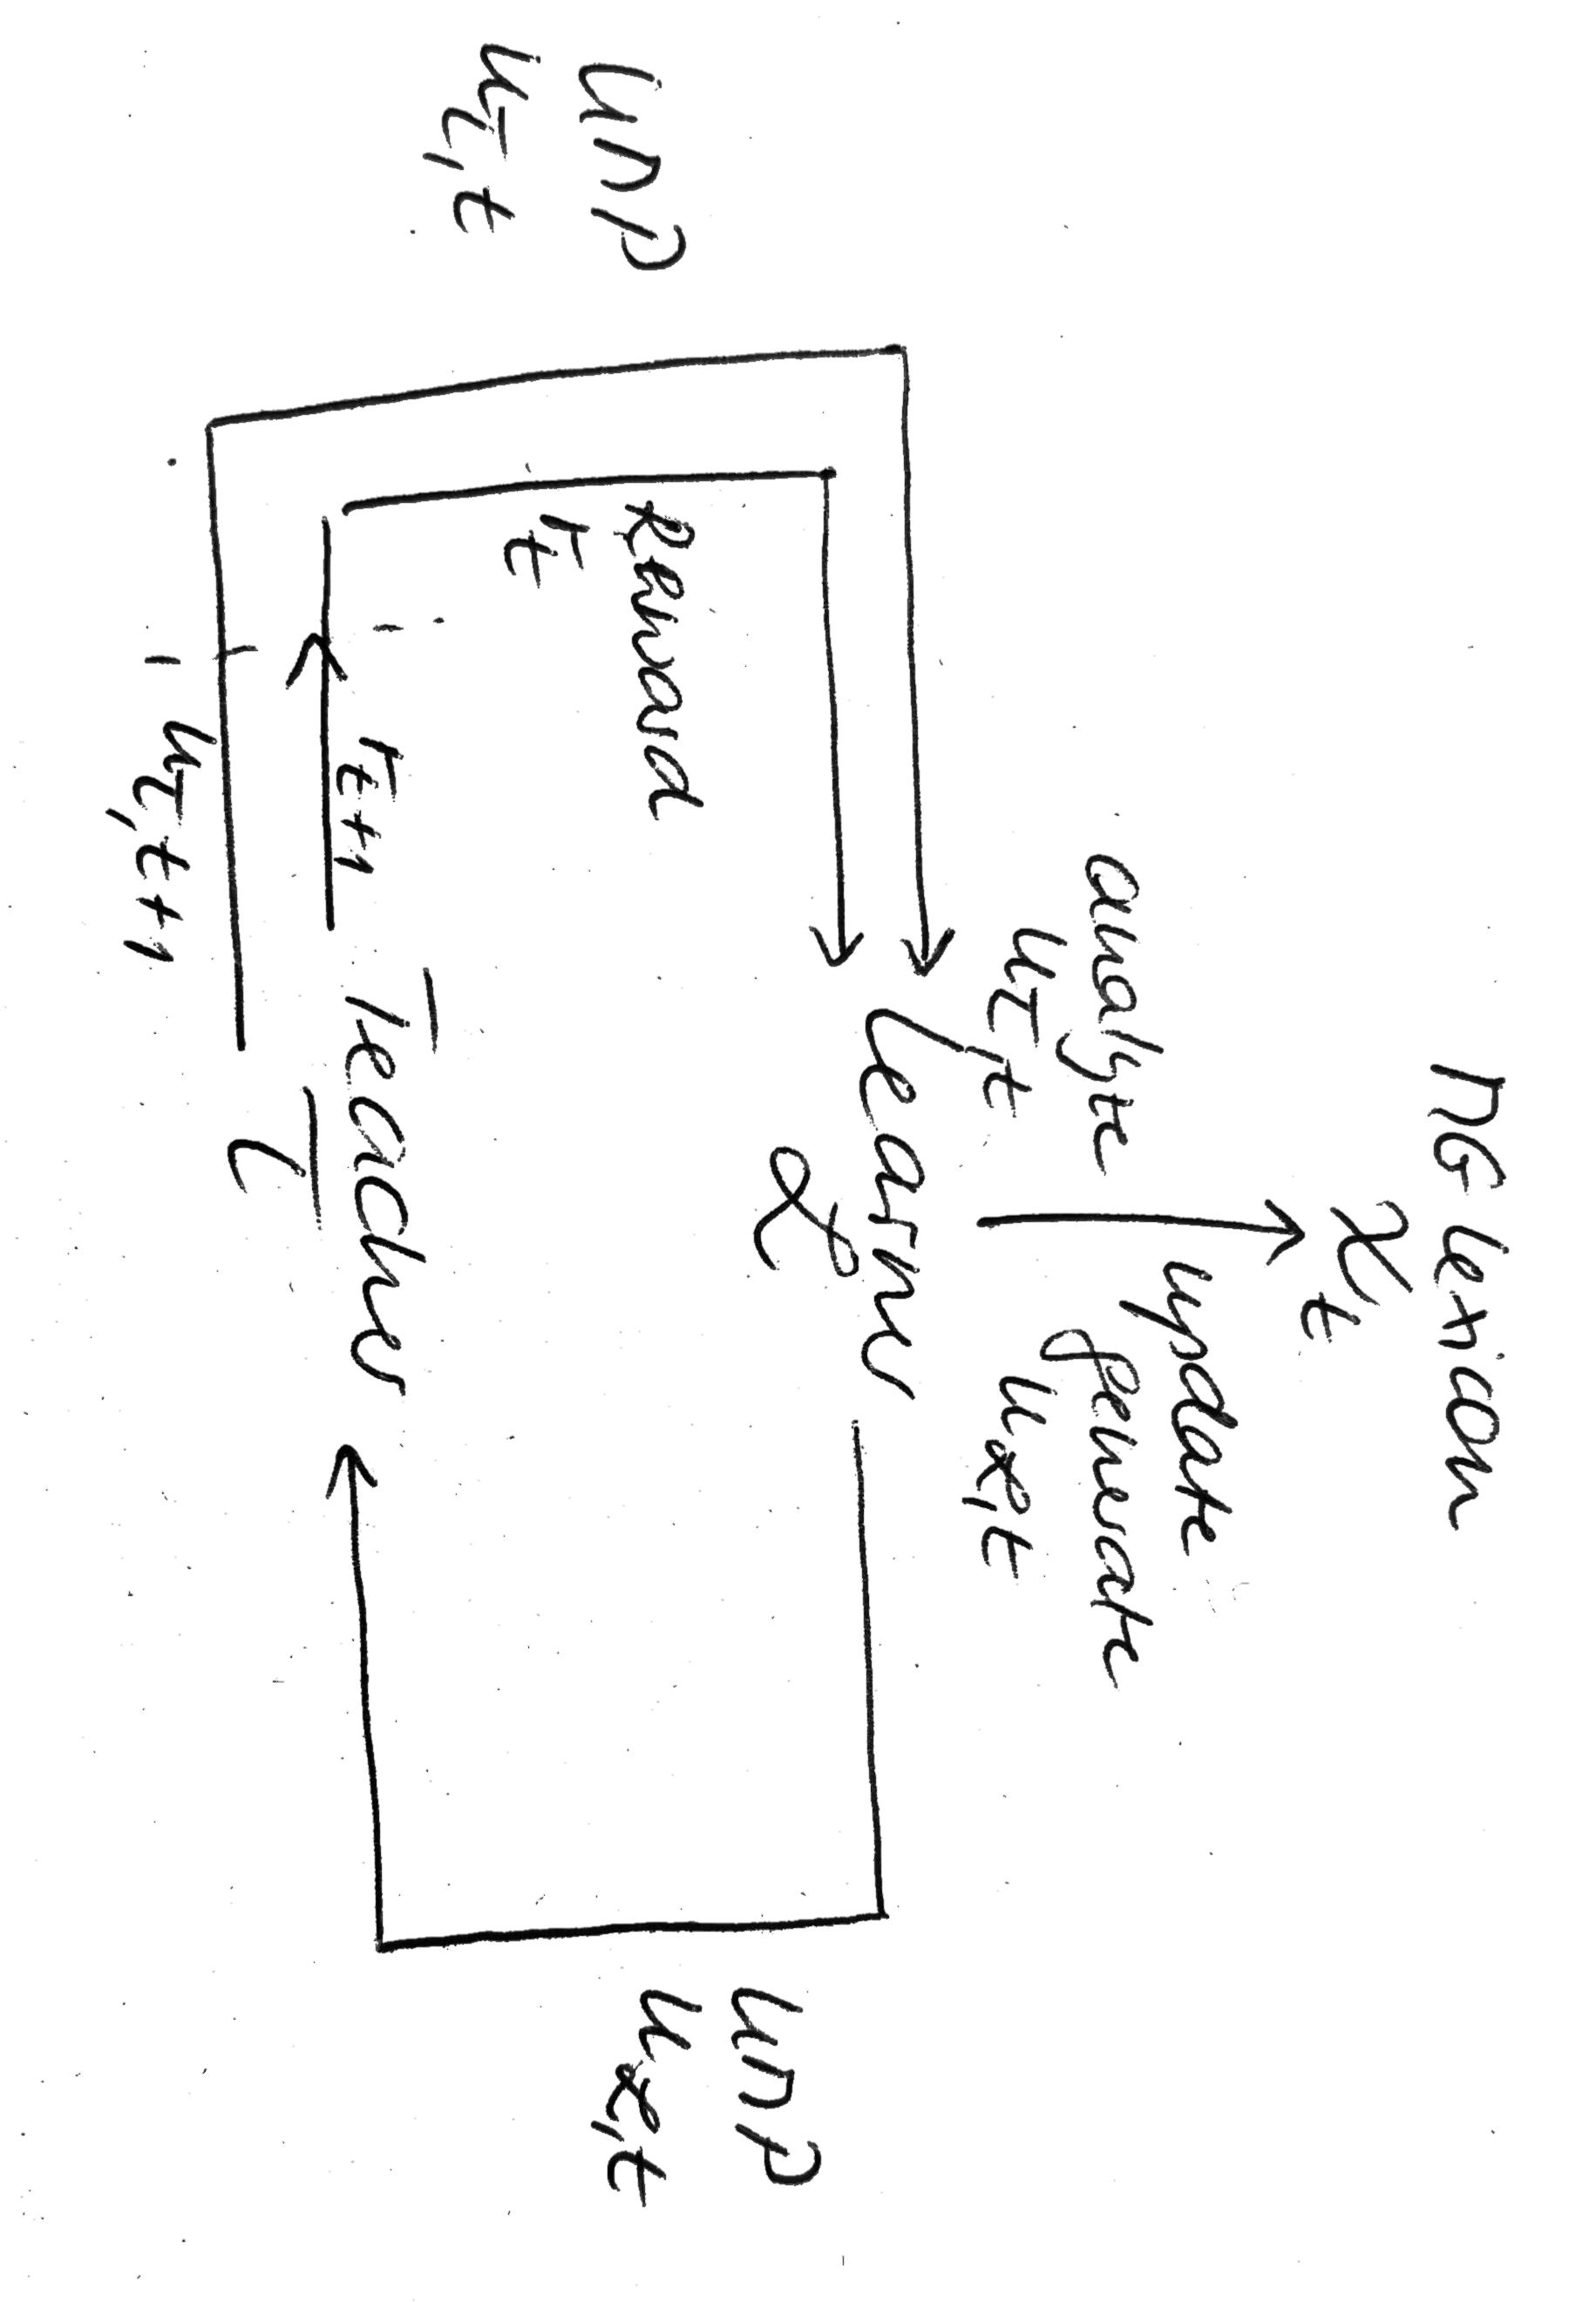 MG Lexicon
𝒳_t
update
analyze
generate
u_{T,t}
u_{ℒ,t}
Learner
ℒ
UMP
u_{ℒ,t}
Reward
r_t
UMP
u_{T,t}
r_{t+1}
Teacher
T
u_{T,t+1}